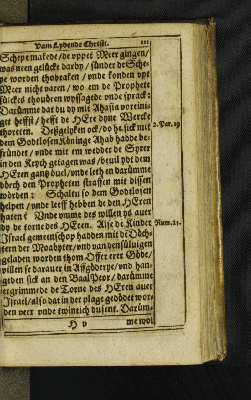 Vam Lydende Christi. 111
Schepe makede/de vppet Meer gingen/
was neen gelücke darby/sünder de Sche-
pe worden thobraken/vnde konden vpt
Meer nicht varen/wo em de Prophete
sülckes thouörn wyssagede vnde sprack:
Darümme dat du dy mit Ahasia voreini-
get heffst/hefft de HEre dyne Wercke
thoreten. Deßgelyken ock/do he sick mit 2. Par. 19
dem Godtlosen Köninge Ahab hadde be-
fründet/vnde mit em wedder de Syrer
in den Krych getagen was/beuil ydt dem
HEren gantz öuel/vnde leth en darümme
dörch den Propheten straffen mit dissen
worden: Schaltu so dem Godtlosen
helpen/vnde leeff hebben de den HEren
haten? Vnde vmme des willen ys auer
dy de torne des HEren. Alse de Kinder Num. 25.
Israel gemeenschop hadden mit de Döch-
tern der Moabyter/vnd van densüluigen
geladen worden thom Offer erer Gödde/
villen se darauer in Affgöderye/vnd han-
geden sick an den Baal Peor/darümme
ergrimmede de Torne des HEren auer
Israel/also dat in der plage gedödet wor-
den veer vnde twintich dusent. Darüm-
H v me wol